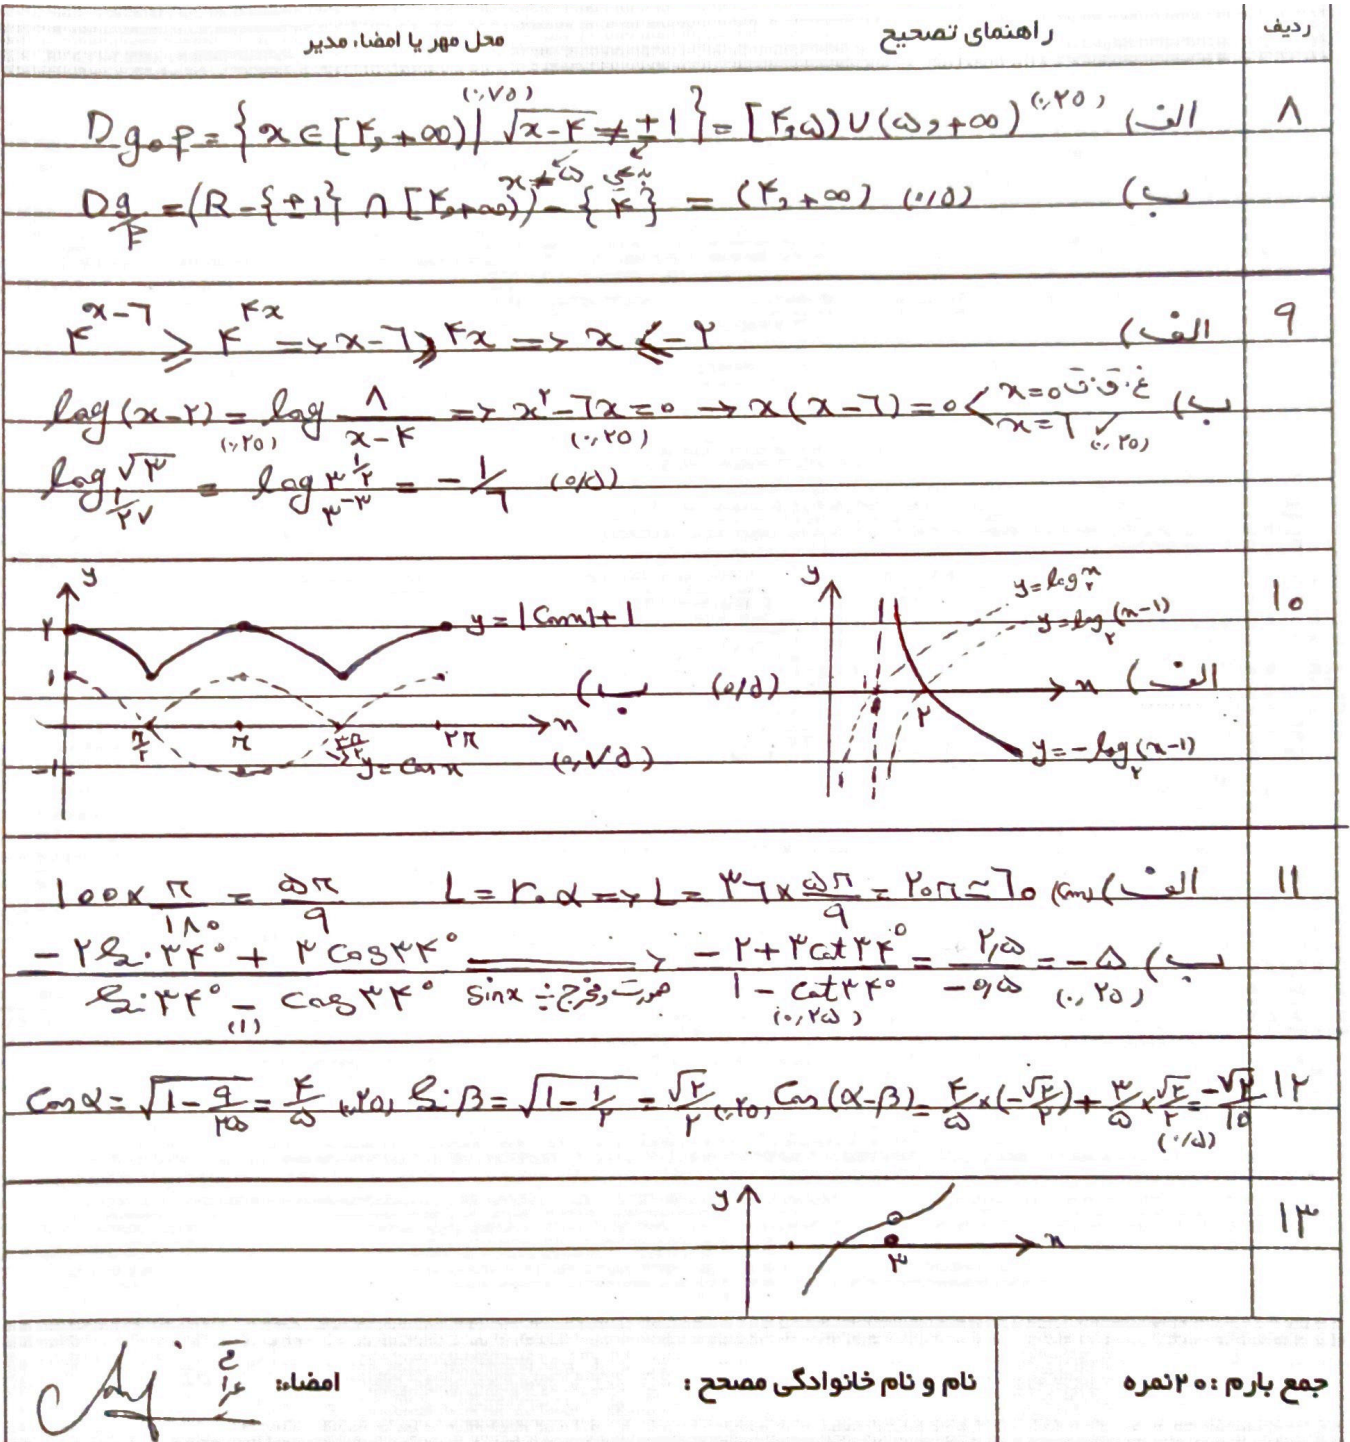 ردیف راهنمای تصحیح محل مهر یا امضاء مدیر
۸ الف) D_{gof} = {x ∈ [۴, +∞) | √(x-۴) ≠ ±۱} = [۴,۵) ∪ (۵, +∞) (۰,۷۵) (۰,۲۵)
x ≠ ۵
ب) D_{g/f} = (R - {±۱} ∩ [۴,+∞)) - {۴} = (۴, +∞) (۰/۵)
۹ الف) ۴^{x-۶} ≥ ۴^{۴x} => x-۶ ≥ ۴x => x ≤ -۲
ب) log(x-۲) = log ۸/(x-۴) => x^۲ - ۶x = ۰ → x(x-۶) = ۰ < x=۰ غ.ق.ق x=۶ ✓
(۰,۲۵) (۰,۲۵) (۰,۲۵)
log_{۱/۲۷} √۳ = log_{۳^{-۳}} ۳^{۱/۲} = -۱/۶ (۰/۵)
۱۰ الف) (۰/۵) y x y=log_۲ x y=log_۲(x-۱) y=-log_۲(x-۱) ۱ ۲
ب) (۰,۷۵) y x y=|Cosx|+۱ y=Cosx ۲ ۱ -۱ π/۲ π ۳π/۲ ۲π
۱۱ الف) ۱۰۰ × π/۱۸۰ = ۵π/۹ L = r.α => L = ۳۶ × ۵π/۹ = ۲۰π ≃ ۶۰ (Km)
ب) (-۲Sin۳۴° + ۳Cos۳۴°)/(Sin۳۴° - Cos۳۴°) ⟹ صورت و مخرج ÷ sinx (-۲+۳Cot۳۴°)/(۱-Cot۳۴°) = ۲,۵/-۰,۵ = -۵
(۱) (۰,۲۵) (۰,۲۵)
۱۲ Cosα = √(۱-۹/۲۵) = ۴/۵ (۰,۲۵) Sinβ = √(۱-۱/۲) = √۲/۲ (۰,۲۵) Cos(α-β) = ۴/۵ × (-√۲/۲) + ۳/۵ × √۲/۲ = -√۲/۱۰ (۰/۵)
۱۳ y x ۳
جمع بارم : ۲۰ نمره نام و نام خانوادگی مصحح : امضاء: